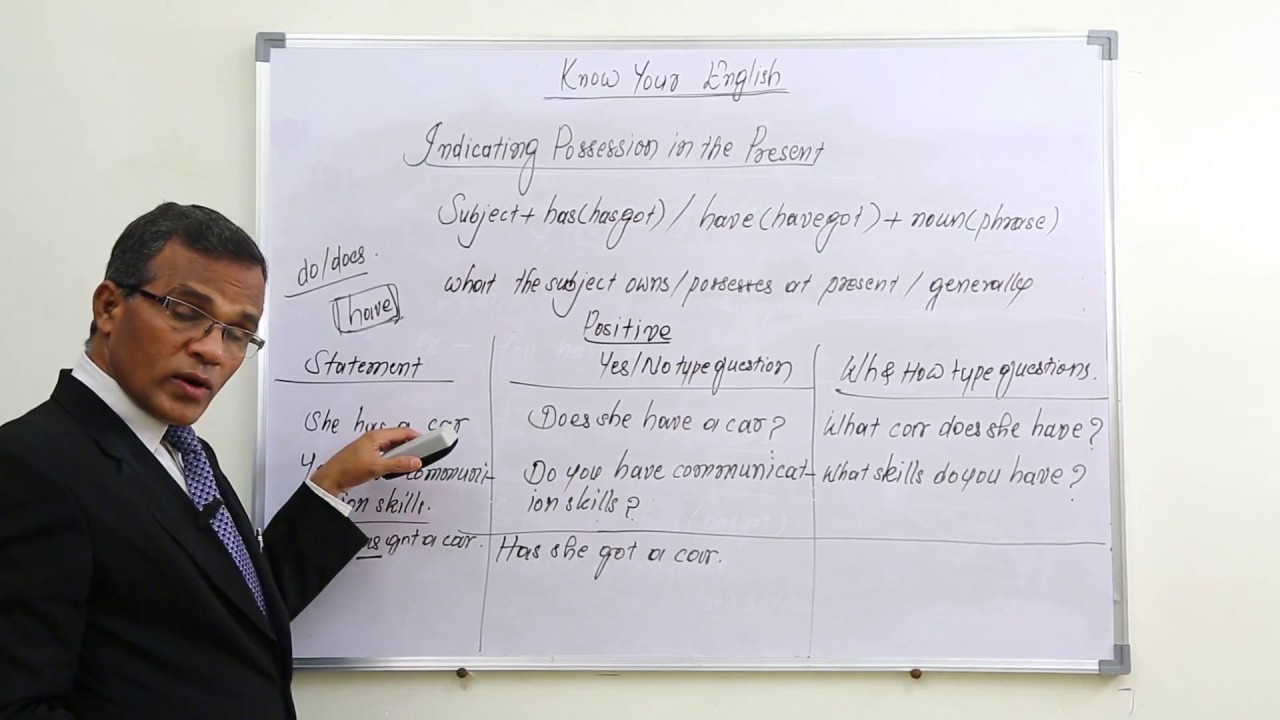 Know Your English
Indicating Possession in the Present
Subject + has(has got) / have (have got) + noun(phrase)
do/does.
have
what the subject owns/possesses at present / generally
Positive
Statement
Yes/No type question
Wh & How type questions.
She has a car
Does she have a car?
What car does she have?
communi-
Do you have communicat-
What skills do you have?
ion skills.
ion skills?
has got a car.
Has she got a car.